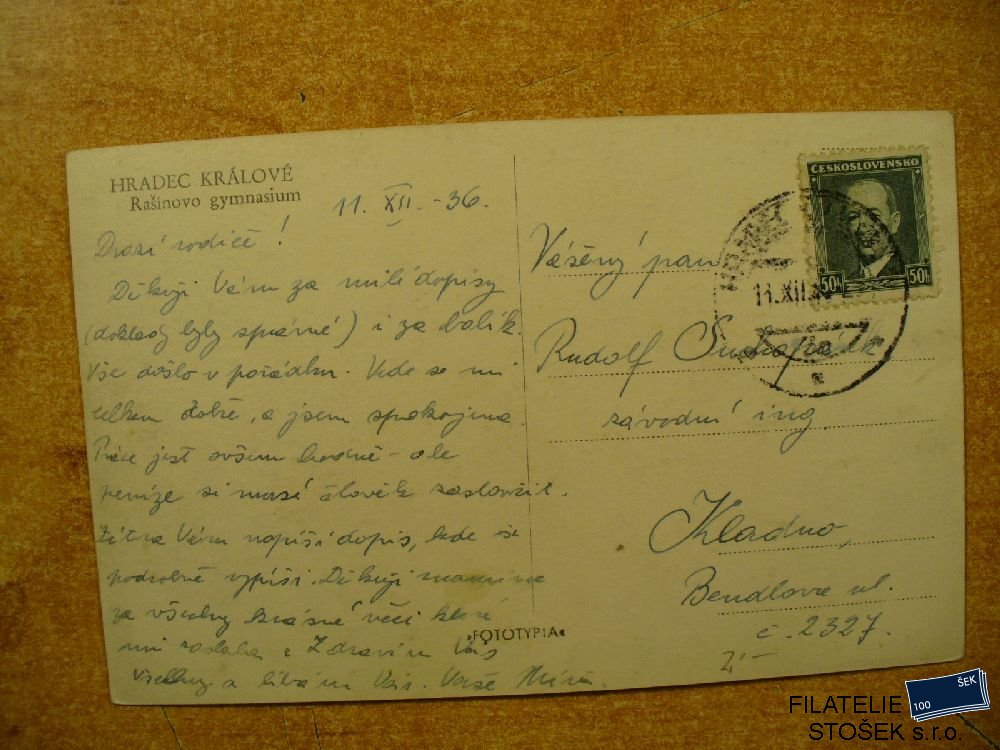 HRADEC KRÁLOVÉ
Rašínovo gymnasium
11. XII. - 36.
Drazí rodiče!
Děkuji Vám za milé dopisy
(doklady byly správné) i za balík.
Vše došlo v pořádku. Vede se mi
celkem dobře, a jsem spokojena.
Práce jest ovšem hodně - ale
peníze si musí člověk zasloužit.
Zítra Vám napíši dopis, kde vše
podrobně vypíši. Děkuji mamince
za všechny krásné věci které
mi poslala a Zdravím Vás
všechny a líbám Vás. Vaše
»FOTOTYPIA«
ČESKOSLOVENSKO
50h 50h
11.XII.36
Vážený pan
Rudolf
závodní ing.
Kladno,
Bendlova ul.
č. 2327.
FILATELIE
STOŠEK s.r.o.
100 ŠEK